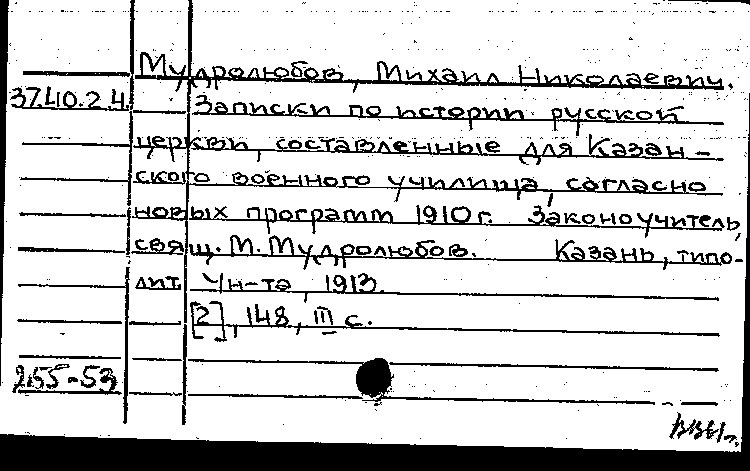 Мудролюбов, Михаил Николаевич.
37.40.2.4. Записки по истории русской
церкви, составленные для Казан-
ского военного училища, согласно
новых программ 1910 г. Законоучитель,
свящ. М. Мудролюбов. Казань, типо-
лит. Ун-та, 1913.
[2], 148, III с.
255-53